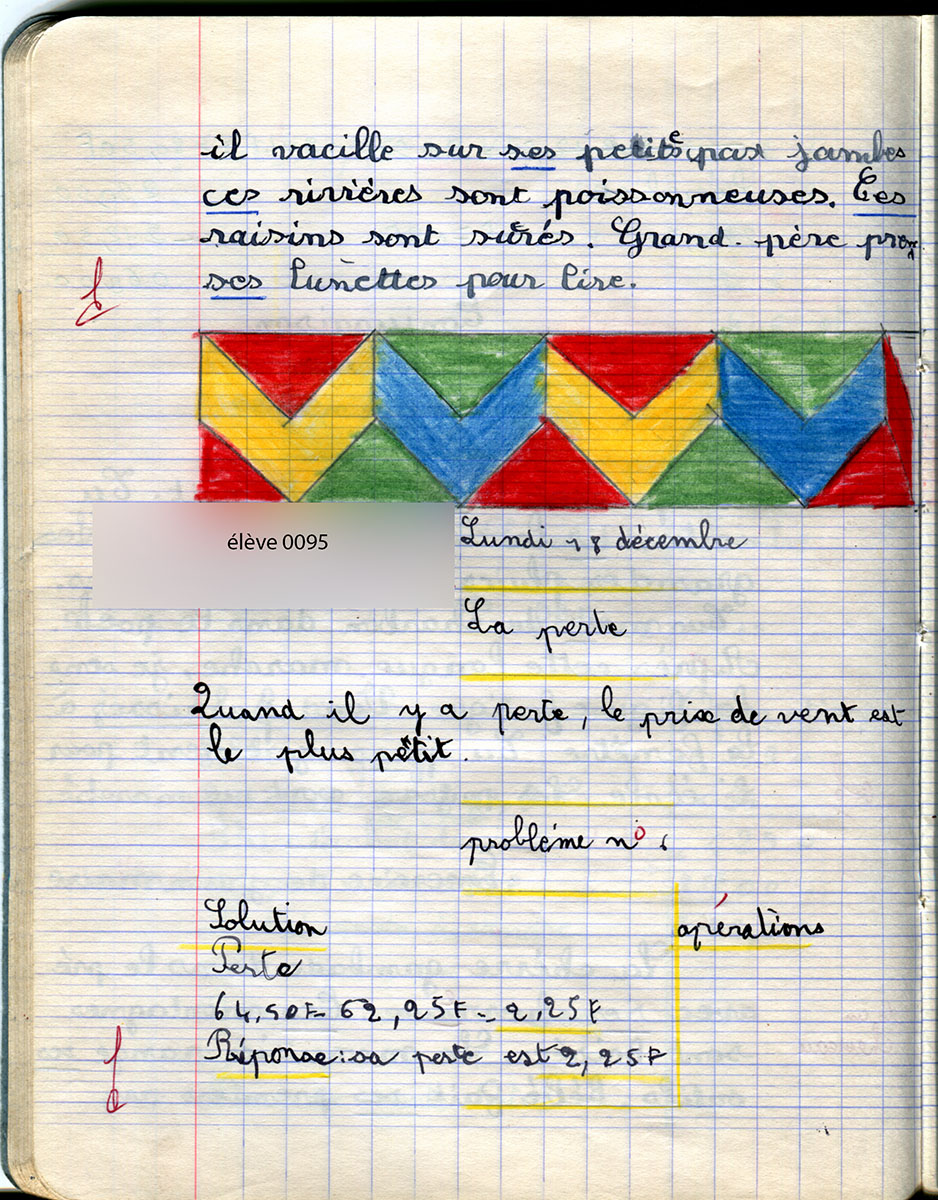 il vacille sur ses petites jambes
ces rivières sont poissonneuses. Ces
raisins sont sûrés. Grand-père prend
ses lunettes pour lire.
élève 0095
Lundi 18 décembre
La perte
Quand il y a perte, le prix de vent est
le plus petit.
problème nº
Solution
opérations
Perte
64,50F - 62,25F = 2,25F
Réponse: sa perte est 2,25F